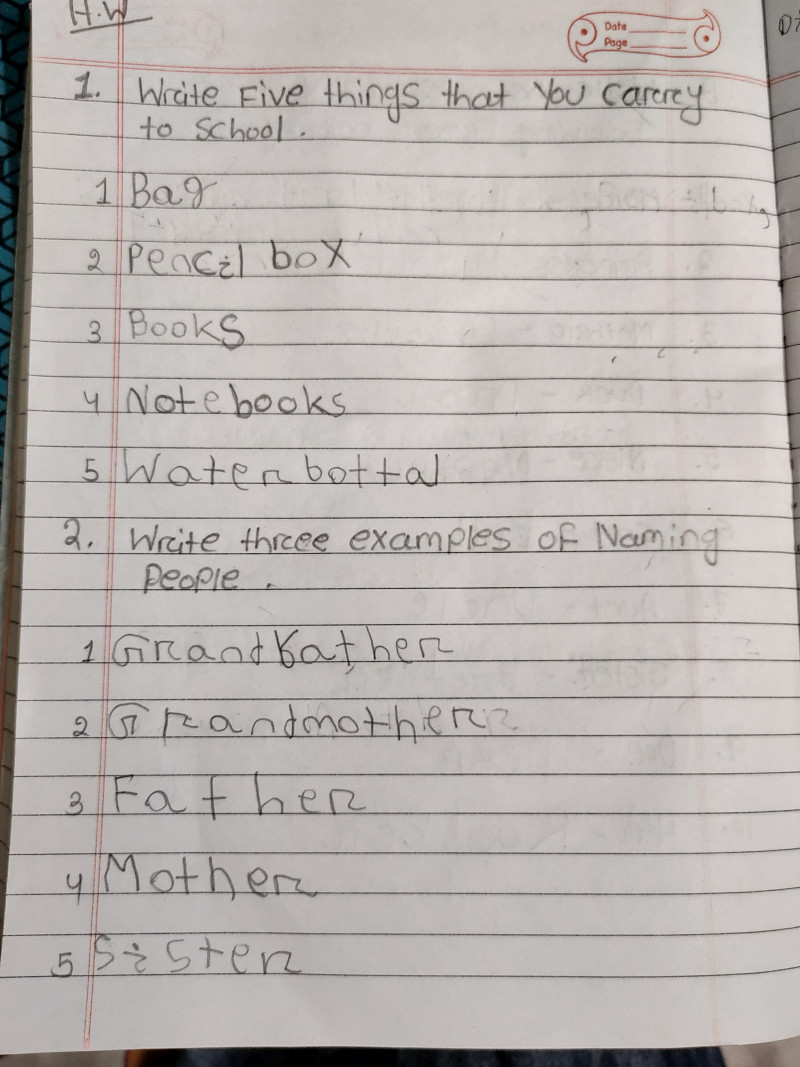 H.W
Date
Page
1. Write Five things that You Carry
to School.
1 Bag
2 Pencil box
3 Books
4 Notebooks
5 Water bottal
2. Write three examples of Naming
People.
1 Grandfather
2 Grandmother
3 Father
4 Mother
5 Sister